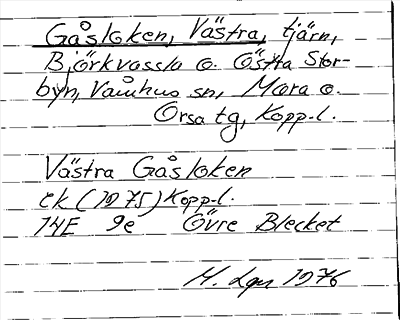 Gåsloken, Västra, tjärn,
Björkvassla o. Östra Stor-
byn, Våmhus sn, Mora o.
Orsa tg, Kopp.l.
Västra Gåsloken
ek (1975) Kopp.l.
14E 9e Övre Blecket
M. Lgn 1976